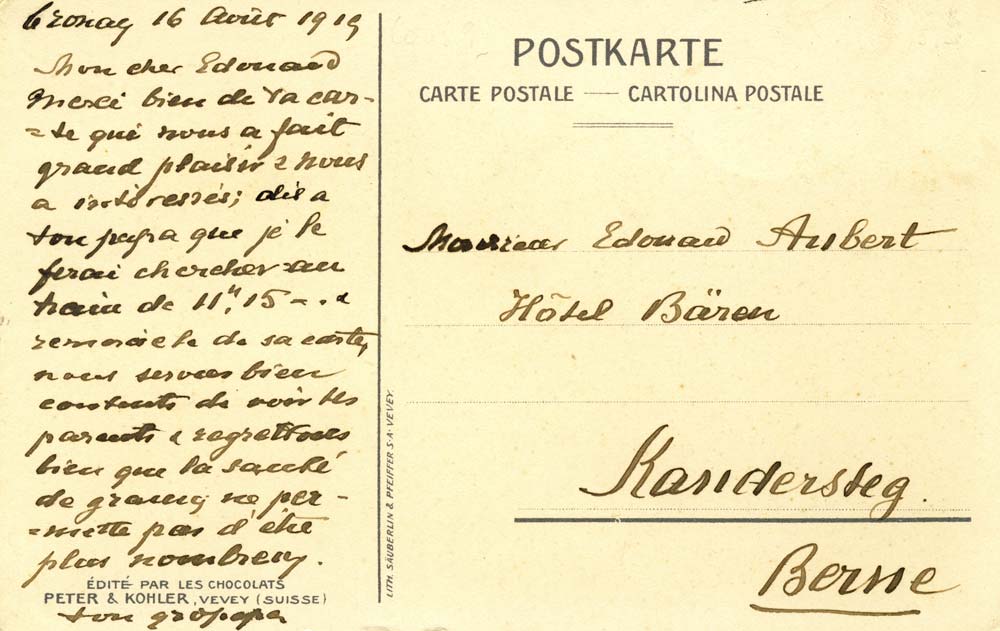 Cronay 16 Août 1919
Mon cher Edouard
Merci bien de ta car-
-te qui nous a fait
grand plaisir & nous
a intéressés; dis a
ton papa que je le
ferai chercher au
train de 11h.15 - . &
remercie le de sa carte,
nous serons bien
contents de voir tes
parents & regrettons
bien que la santé
de gramy ne per-
-mette pas d'être
plus nombreux.
ton gropapa
ÉDITÉ PAR LES CHOCOLATS
PETER & KOHLER, VEVEY (SUISSE)
LITH. SÄUBERLIN & PFEIFFER S.A. VEVEY.
POSTKARTE
CARTE POSTALE — CARTOLINA POSTALE
Monsieur Edouard Aubert
Hôtel Bären
Kandersteg.
Berne